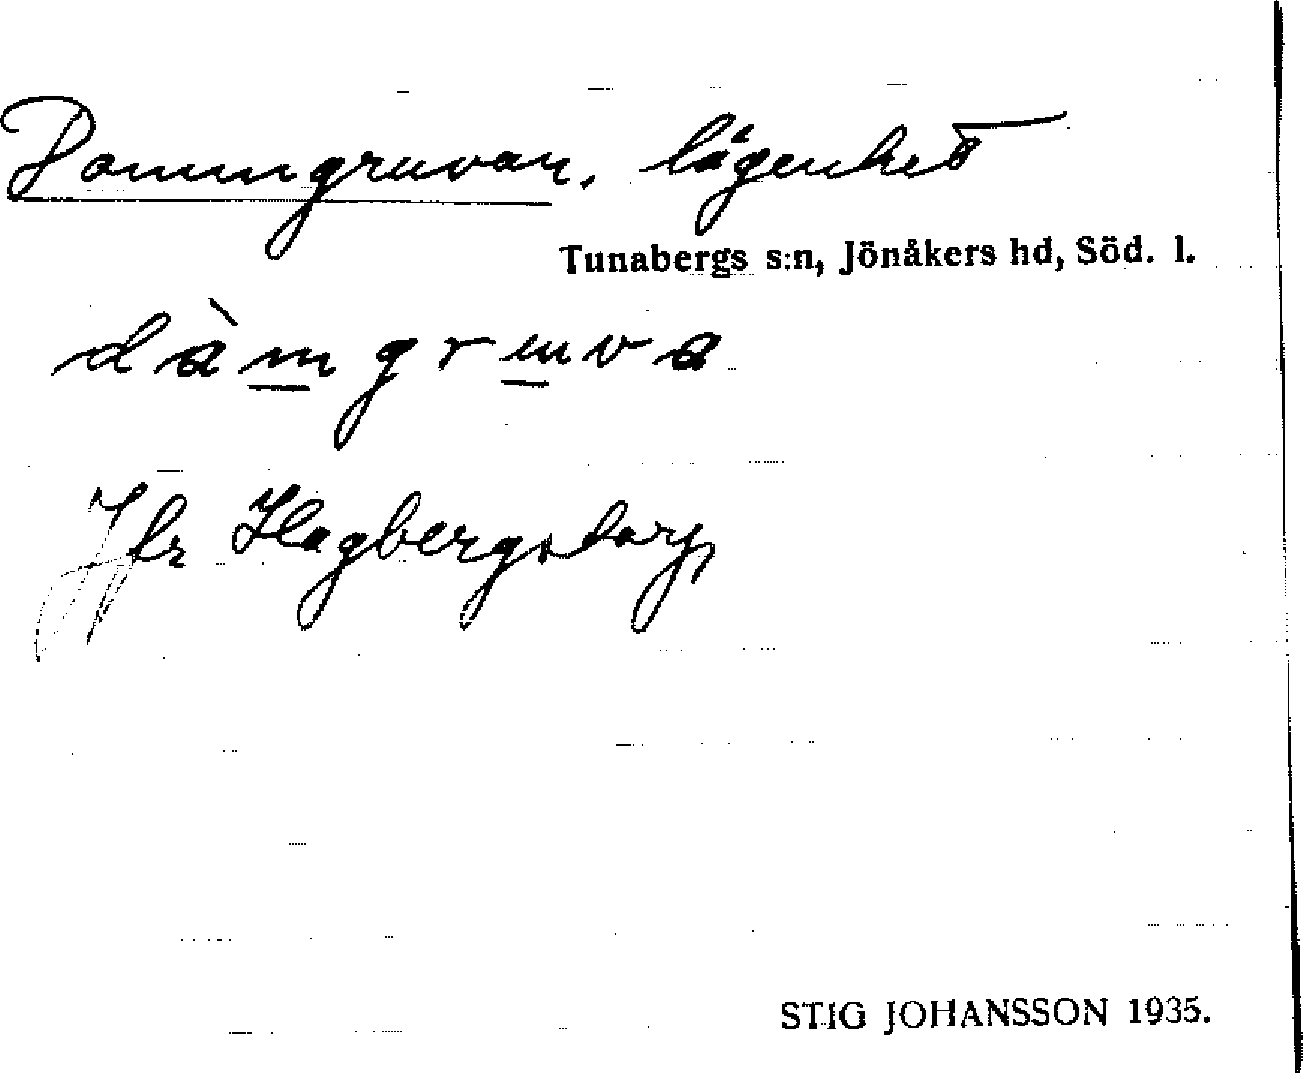 Dammgruvan, lägenhet
Tunabergs s:n, Jönåkers hd, Söd. l.
dàmgruva
Jfr Hagbergstorp
STIG JOHANSSON 1935.